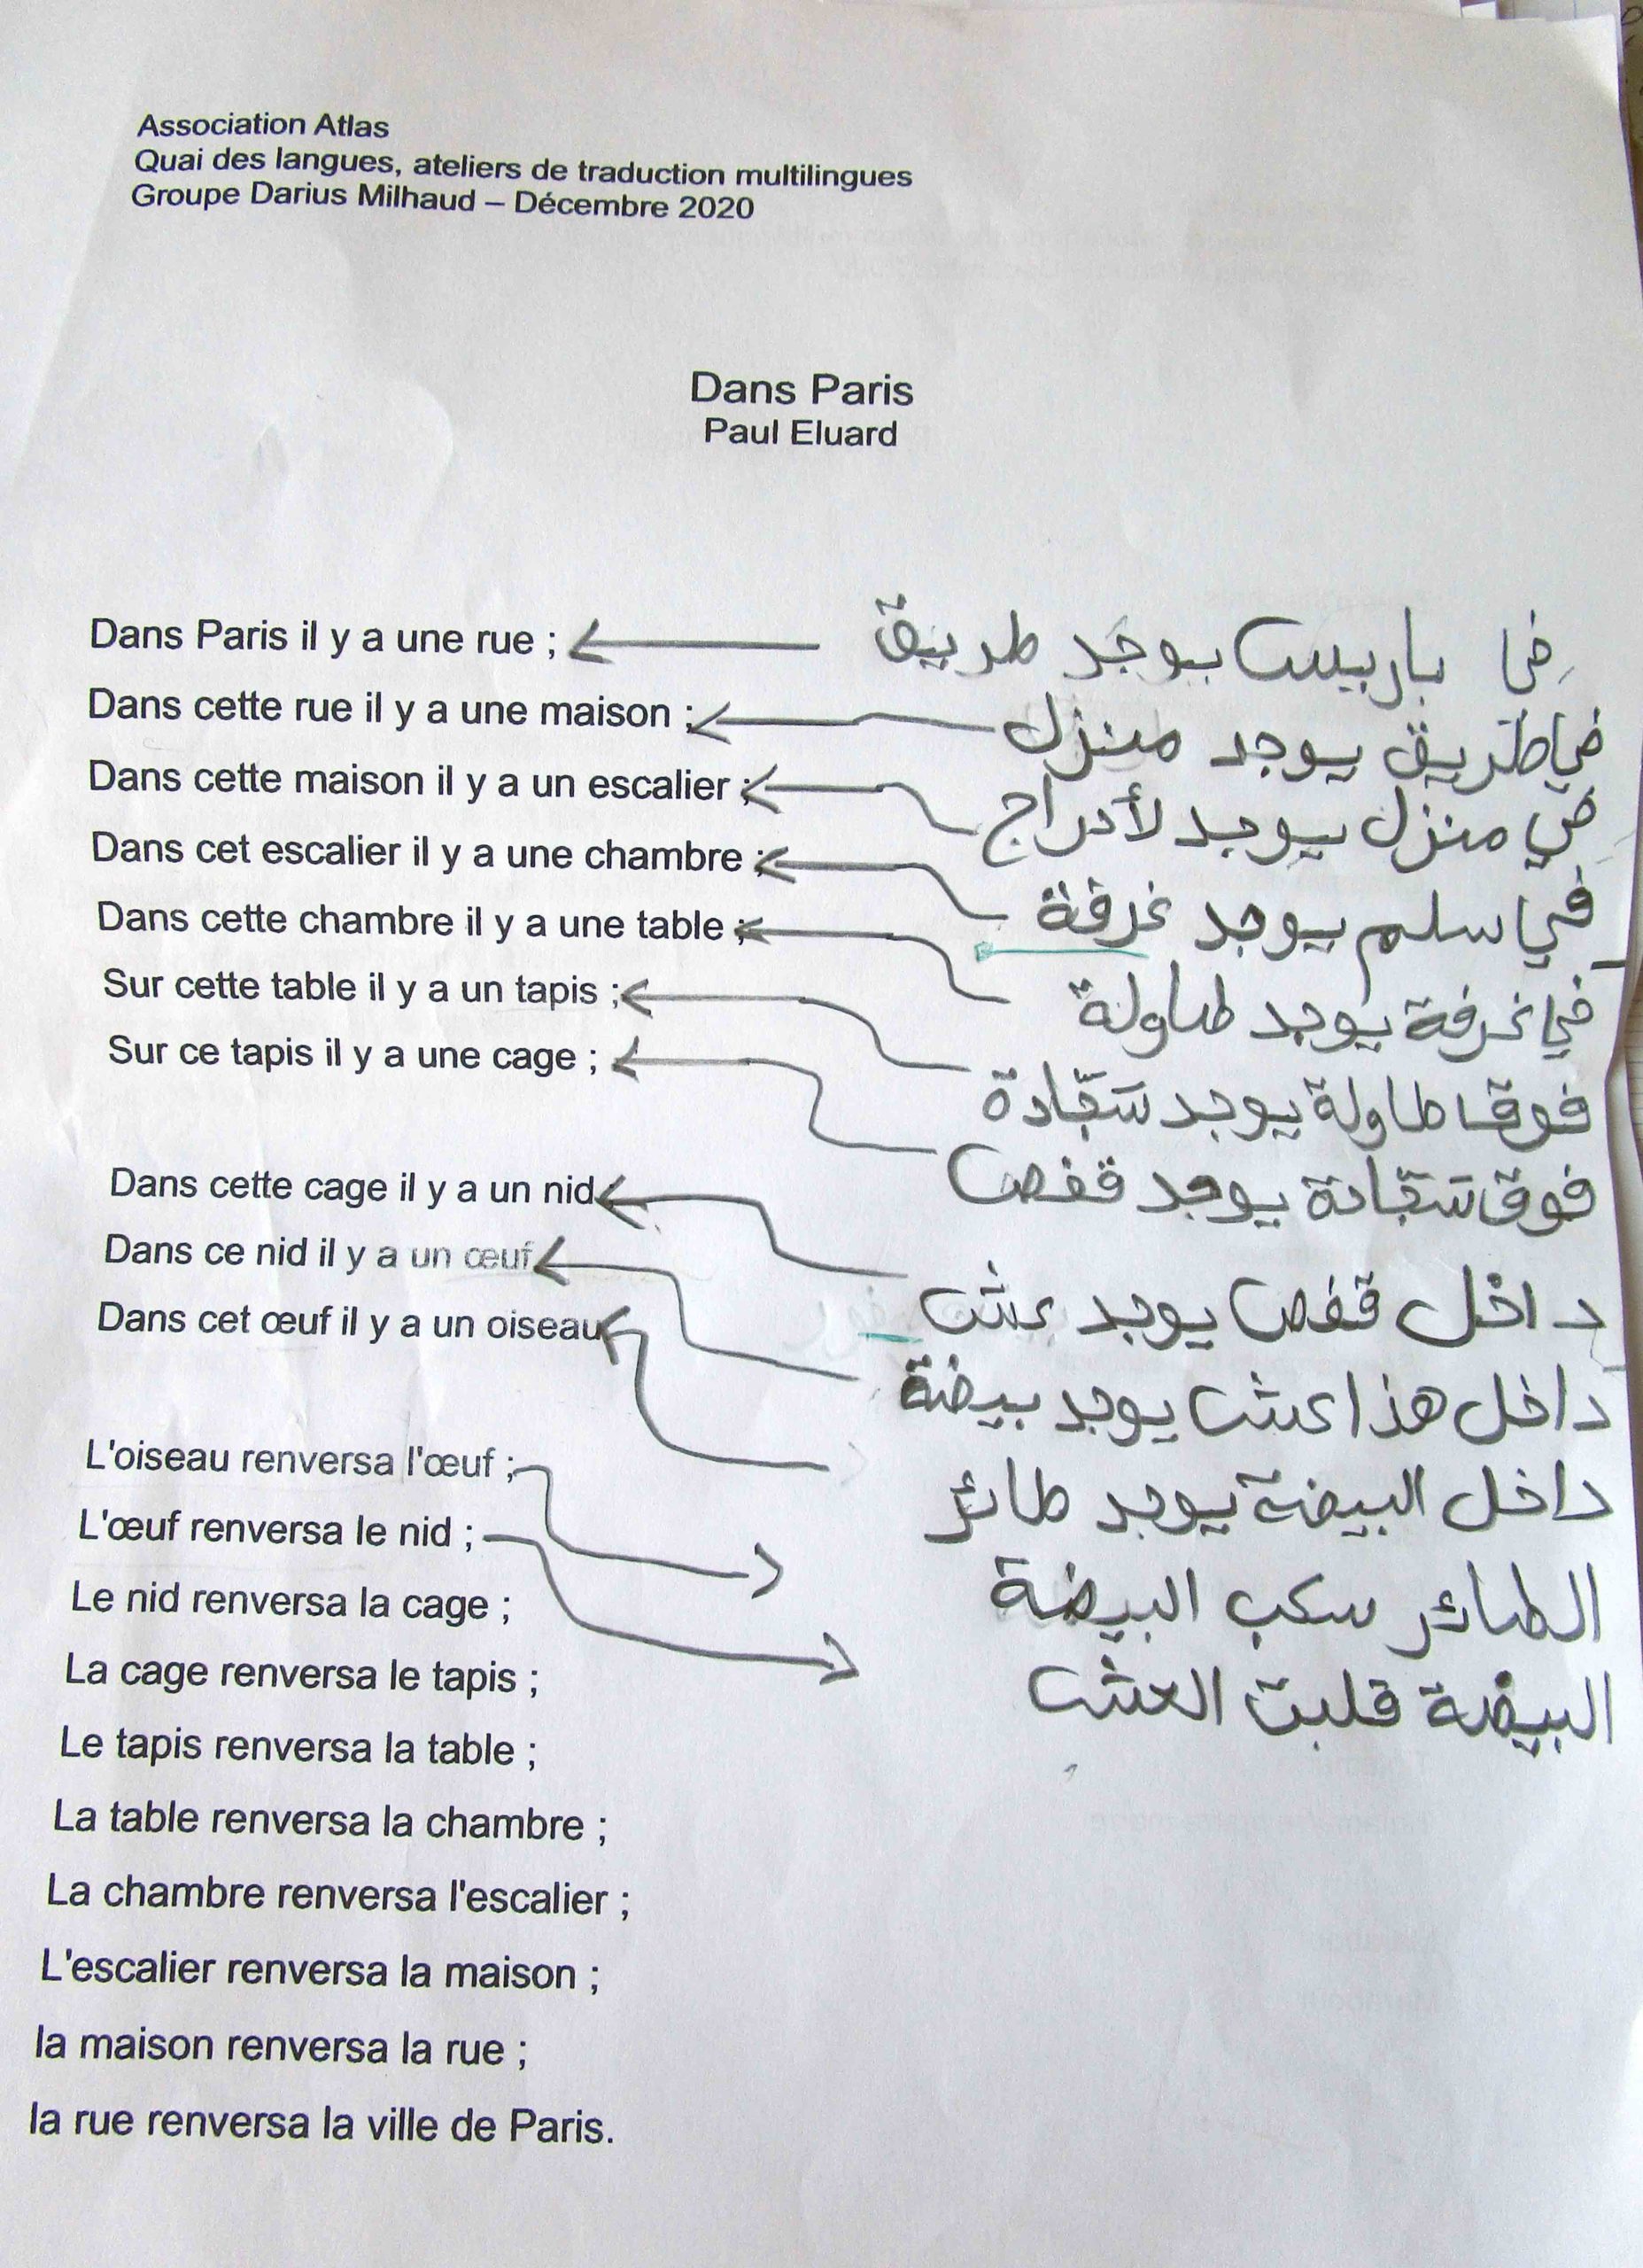 Association Atlas
Quai des langues, ateliers de traduction multilingues
Groupe Darius Milhaud – Décembre 2020
Dans Paris
Paul Eluard
Dans Paris il y a une rue ;
في باريس يوجد طريق
Dans cette rue il y a une maison ;
في طريق يوجد منزل
Dans cette maison il y a un escalier ;
في منزل يوجد لأدراج
Dans cet escalier il y a une chambre ;
في سلم يوجد غرفة
Dans cette chambre il y a une table ;
في غرفة يوجد طاولة
Sur cette table il y a un tapis ;
فوق طاولة يوجد سجادة
Sur ce tapis il y a une cage ;
فوق سجادة يوجد قفص
Dans cette cage il y a un nid
داخل قفص يوجد عش
Dans ce nid il y a un œuf
داخل هذا عش يوجد بيضة
Dans cet œuf il y a un oiseau
داخل البيضة يوجد طائر
L'oiseau renversa l'œuf ;
الطائر سكب البيضة
L'œuf renversa le nid ;
البيضة قلبت العش
Le nid renversa la cage ;
La cage renversa le tapis ;
Le tapis renversa la table ;
La table renversa la chambre ;
La chambre renversa l'escalier ;
L'escalier renversa la maison ;
la maison renversa la rue ;
la rue renversa la ville de Paris.